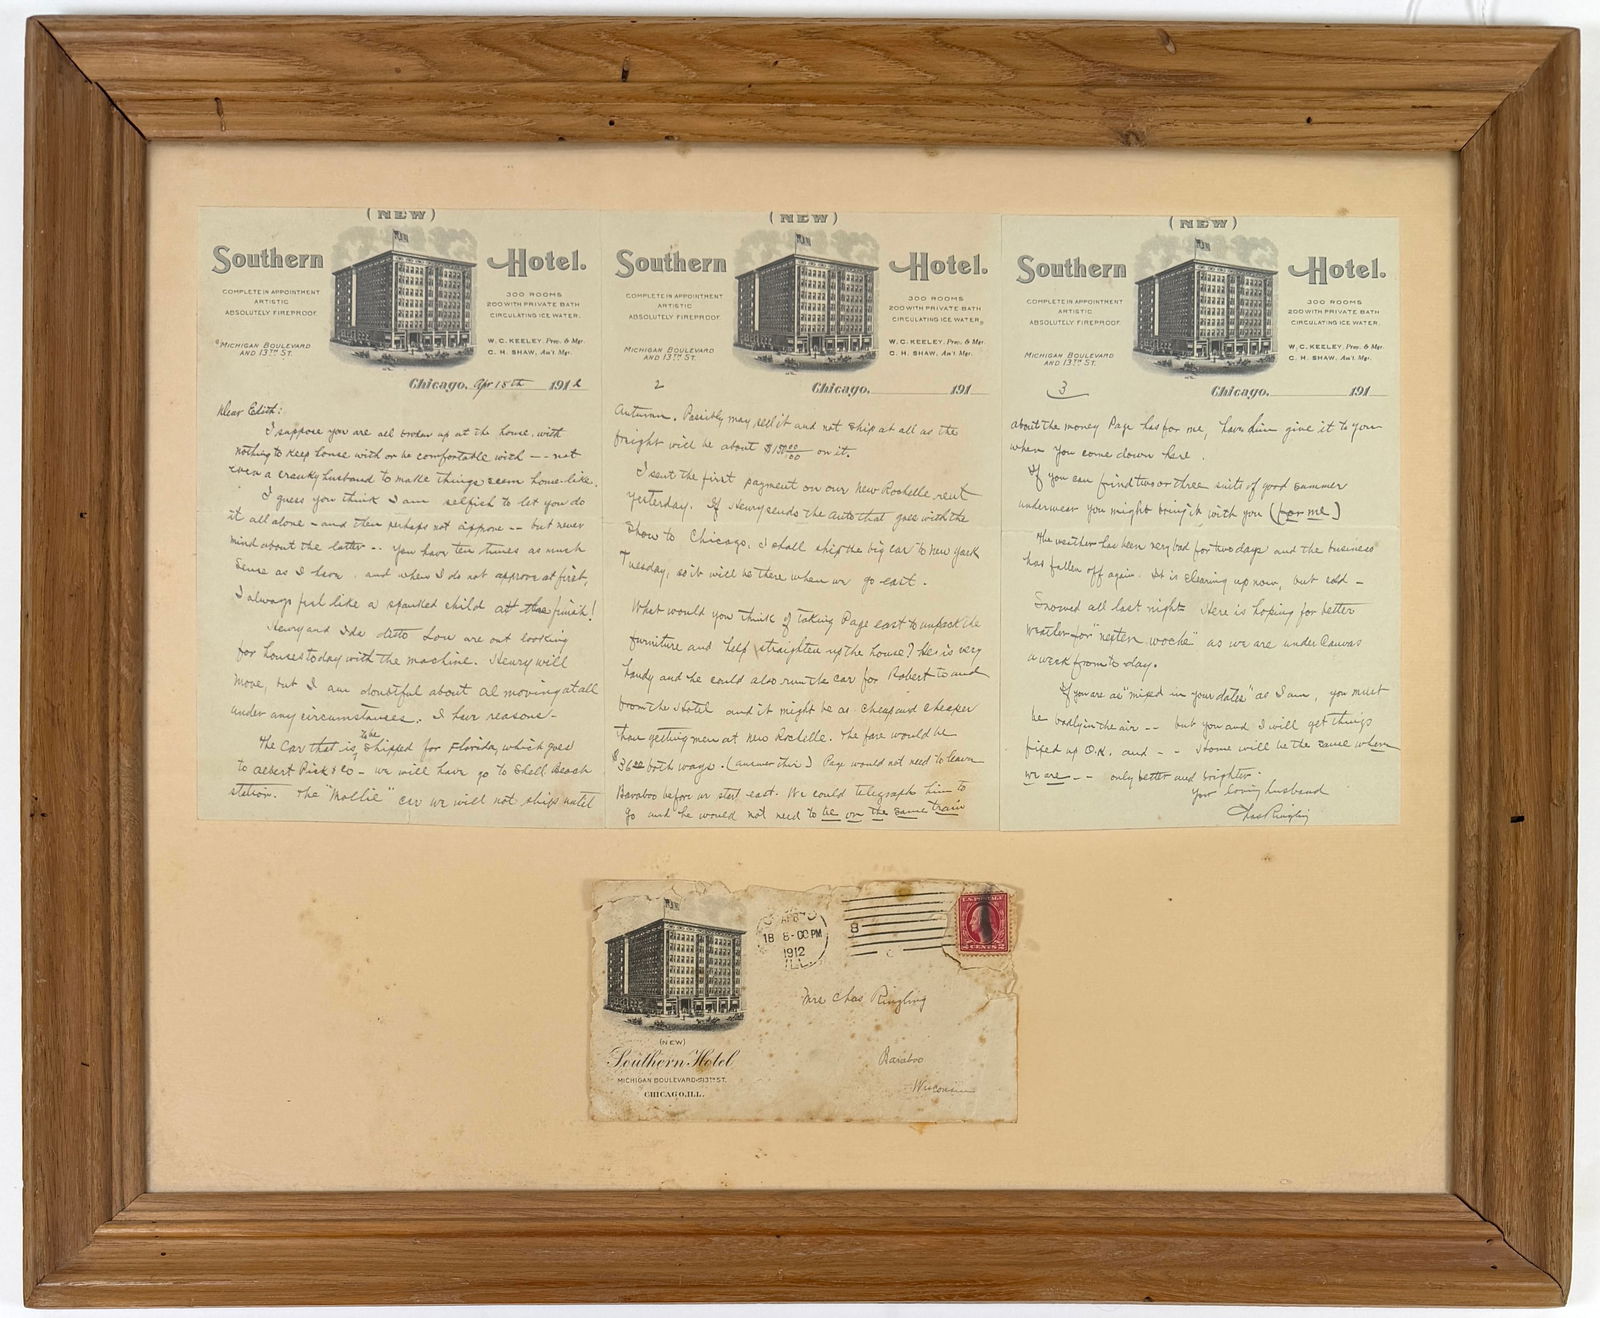 (NEW)
Southern Hotel.
COMPLETE IN APPOINTMENT
ARTISTIC
ABSOLUTELY FIREPROOF.
300 ROOMS
200 WITH PRIVATE BATH
CIRCULATING ICE WATER.
MICHIGAN BOULEVARD
AND 13TH ST.
W. C. KEELEY, Pres. & Mgr.
C. H. SHAW, Ass't Mgr.
Chicago, Apr 18th 1912
Dear Edith:
I suppose you are all broken up at the house, with
nothing to keep house with or be comfortable with -- not
even a cranky husband to make things seem home-like.
I guess you think I am selfish to let you do
it all alone - and then perhaps not approve -- but never
mind about the latter -. You have ten times as much
sense as I have, and when I do not approve at first,
I always feel like a spanked child at the finish!
Henry and Ida ditto Lou are out looking
for houses today with the machine. Henry will
move, but I am doubtful about Al moving at all
under any circumstances. I have reasons-
The Car that is to be shipped for Florida, which goes
to Albert Pick & Co - we will have go to Shell Beach
station. The "Mollie" car we will not ship until
(NEW)
Southern Hotel.
COMPLETE IN APPOINTMENT
ARTISTIC
ABSOLUTELY FIREPROOF.
300 ROOMS
200 WITH PRIVATE BATH
CIRCULATING ICE WATER.
MICHIGAN BOULEVARD
AND 13TH ST.
W. C. KEELEY, Pres. & Mgr.
C. H. SHAW, Ass't Mgr.
2 Chicago, 191
Autumn. Possibly may sell it and not ship at all as the
freight will be about $150 00/00 on it.
I sent the first payment on our New Rochelle rent
yesterday. If Henry sends the auto that goes with the
Show to Chicago, I shall ship the big car to New York
Tuesday, so it will be there when we go east.
What would you think of taking Page east to unpack the
furniture and help straighten up the house? He is very
handy and he could also run the car for Robert to and
from the Hotel and it might be as cheap and cheaper
than getting men at New Rochelle. The fare would be
$36 00 both ways. (answer this) Page would not need to leave
Baraboo before we start east. We could telegraph him to
go and he would not need to be on the same train
(NEW)
Southern Hotel.
COMPLETE IN APPOINTMENT
ARTISTIC
ABSOLUTELY FIREPROOF.
300 ROOMS
200 WITH PRIVATE BATH
CIRCULATING ICE WATER.
MICHIGAN BOULEVARD
AND 13TH ST.
W. C. KEELEY, Pres. & Mgr.
C. H. SHAW, Ass't Mgr.
3 Chicago, 191
about the money Page has for me, have him give it to you
when you come down here.
If you can find two or three suits of good summer
underwear you might bring it with you (for me)
The weather has been very bad for two days and the business
has fallen off again. It is clearing up now, but cold -
Snowed all last night. Here is hoping for better
weather for "nesten woche" as we are under Canvas
a week from to day.
If you are as "mixed in your dates" as I am, you must
be badly in the air -- but you and I will get things
fixed up O.K. and -- Home will be the same where
we are -- only better and brighter.
Your loving husband
Chas Ringling
18 8-00 PM
1912
ILL.
8
U.S. POSTAGE
2 CENTS 2
Mrs Chas Ringling
Baraboo
Wisconsin
(NEW)
Southern Hotel
MICHIGAN BOULEVARD & 13TH ST.
CHICAGO, ILL.